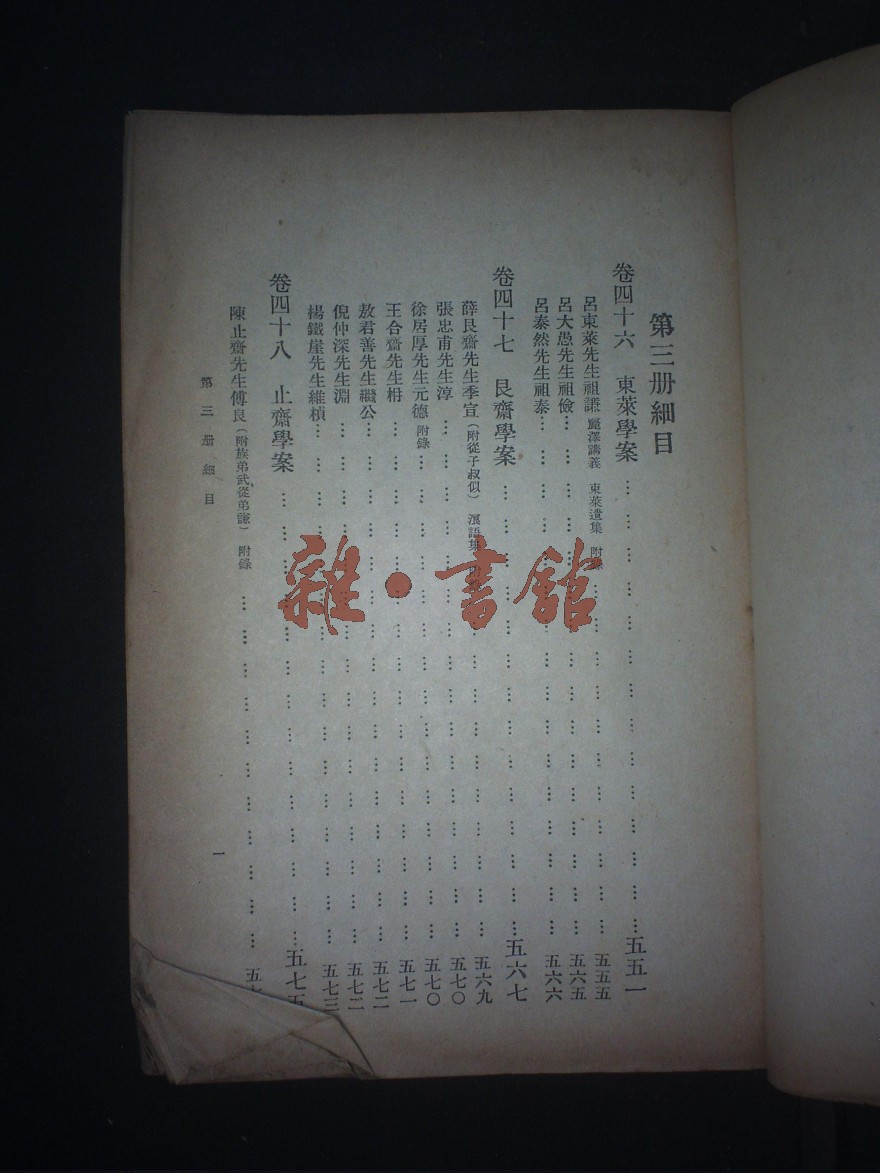 第三册細目
卷四十六　東萊學案……五五一
呂東萊先生祖謙 麗澤講義　東萊遺集　附錄……五五五
呂大愚先生祖儉……五六五
呂泰然先生祖泰……五六六
卷四十七　艮齋學案……五六七
薛艮齋先生季宣（附從子叔似）　浪語集……五六九
張忠甫先生淳……五七〇
徐居厚先生元德 附錄……五七〇
王合齋先生枏……五七一
敖君善先生繼公……五七二
倪仲深先生淵……五七二
楊鐵崖先生維楨……五七三
卷四十八　止齋學案……五七五
陳止齋先生傅良（附族弟武從弟謙）　附錄……五七
第三册細目
一
雜·書館